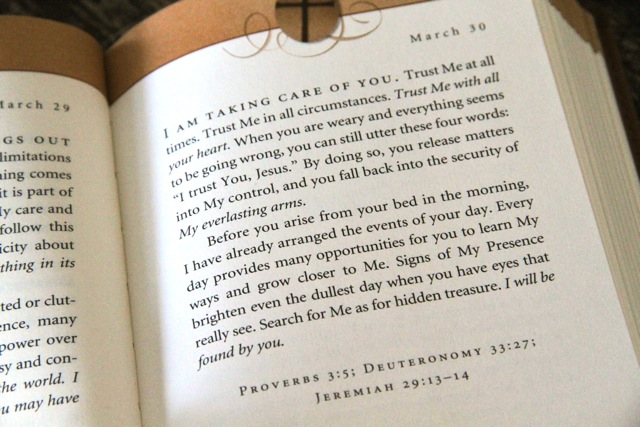 March 29
GS OUT
limitations
ning comes
it is part of
My care and
follow this
icity about
thing in its
ted or clut-
ence, many
power over
sy and con-
the world. I
u may have
March 30
I AM TAKING CARE OF YOU. Trust Me at all
times. Trust Me in all circumstances. Trust Me with all
your heart. When you are weary and everything seems
to be going wrong, you can still utter these four words:
“I trust You, Jesus.” By doing so, you release matters
into My control, and you fall back into the security of
My everlasting arms.
Before you arise from your bed in the morning,
I have already arranged the events of your day. Every
day provides many opportunities for you to learn My
ways and grow closer to Me. Signs of My Presence
brighten even the dullest day when you have eyes that
really see. Search for Me as for hidden treasure. I will be
found by you.
PROVERBS 3:5; DEUTERONOMY 33:27;
JEREMIAH 29:13–14